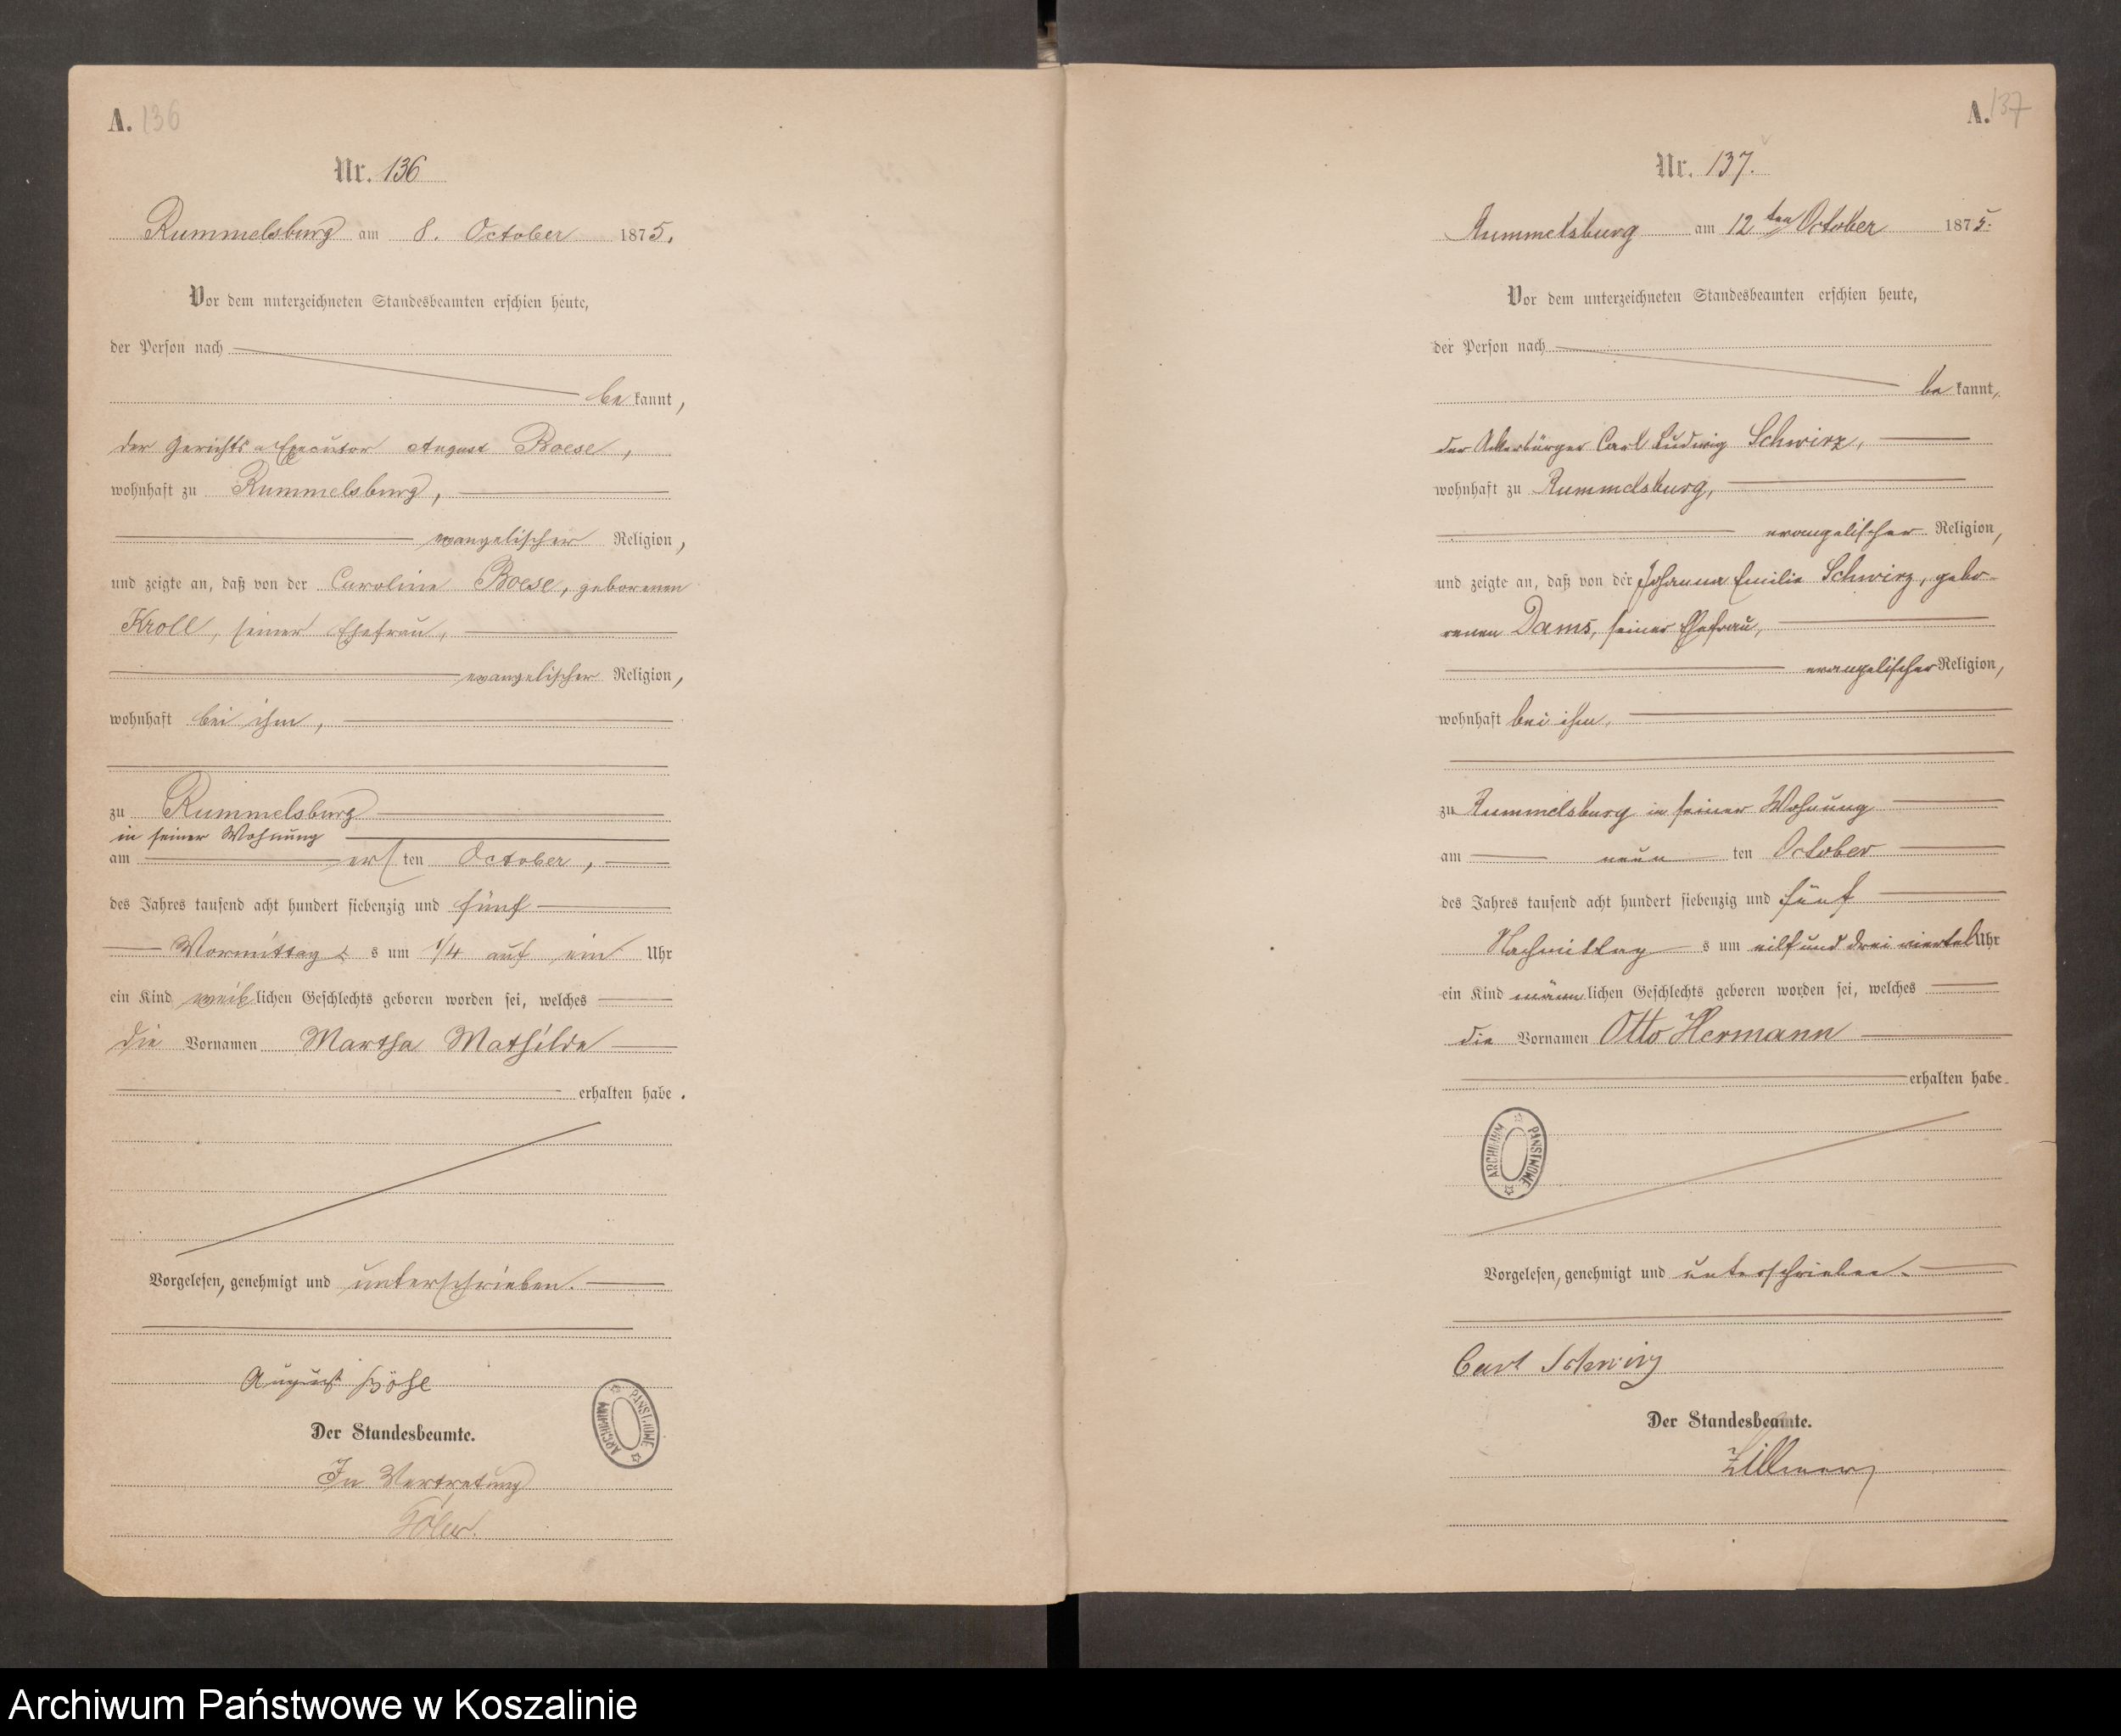 A. 136
Nr. 136
Rummelsburg am 8. October 1875.
Vor dem unterzeichneten Standesbeamten erschien heute,
der Person nach
bekannt,
der Gerichts-Executor August Boese,
wohnhaft zu Rummelsburg,
evangelischer Religion,
und zeigte an, daß von der Caroline Boese, geborenen
Kroll, seiner Ehefrau,
evangelischer Religion,
wohnhaft bei ihm,
zu Rummelsburg
in seiner Wohnung
am ersten October,
des Jahres tausend acht hundert siebenzig und fünf
Vormittags um 1/4 auf ein Uhr
ein Kind weiblichen Geschlechts geboren worden sei, welches
die Vornamen Martha Mathilde
erhalten habe.
Vorgelesen, genehmigt und unterschrieben.
August Böse
Der Standesbeamte.
In Vertretung
ARCHIWUM PAŃSTWOWE
A. 137
Nr. 137.
Rummelsburg am 12ten October 1875.
Vor dem unterzeichneten Standesbeamten erschien heute,
der Person nach
bekannt,
der Ackerbürger Carl Ludwig Schwirz,
wohnhaft zu Rummelsburg,
evangelischer Religion,
und zeigte an, daß von der Johanna Emilie Schwirz, gebo-
renen Dams, seiner Ehefrau,
evangelischer Religion,
wohnhaft bei ihm,
zu Rummelsburg in seiner Wohnung
am neunten October
des Jahres tausend acht hundert siebenzig und fünf
Nachmittags um eilf und drei viertel Uhr
ein Kind männlichen Geschlechts geboren worden sei, welches
die Vornamen Otto Hermann
erhalten habe.
ARCHIWUM PAŃSTWOWE
Vorgelesen, genehmigt und unterschrieben.
Carl Schwirz
Der Standesbeamte.
Zillmer
Archiwum Państwowe w Koszalinie